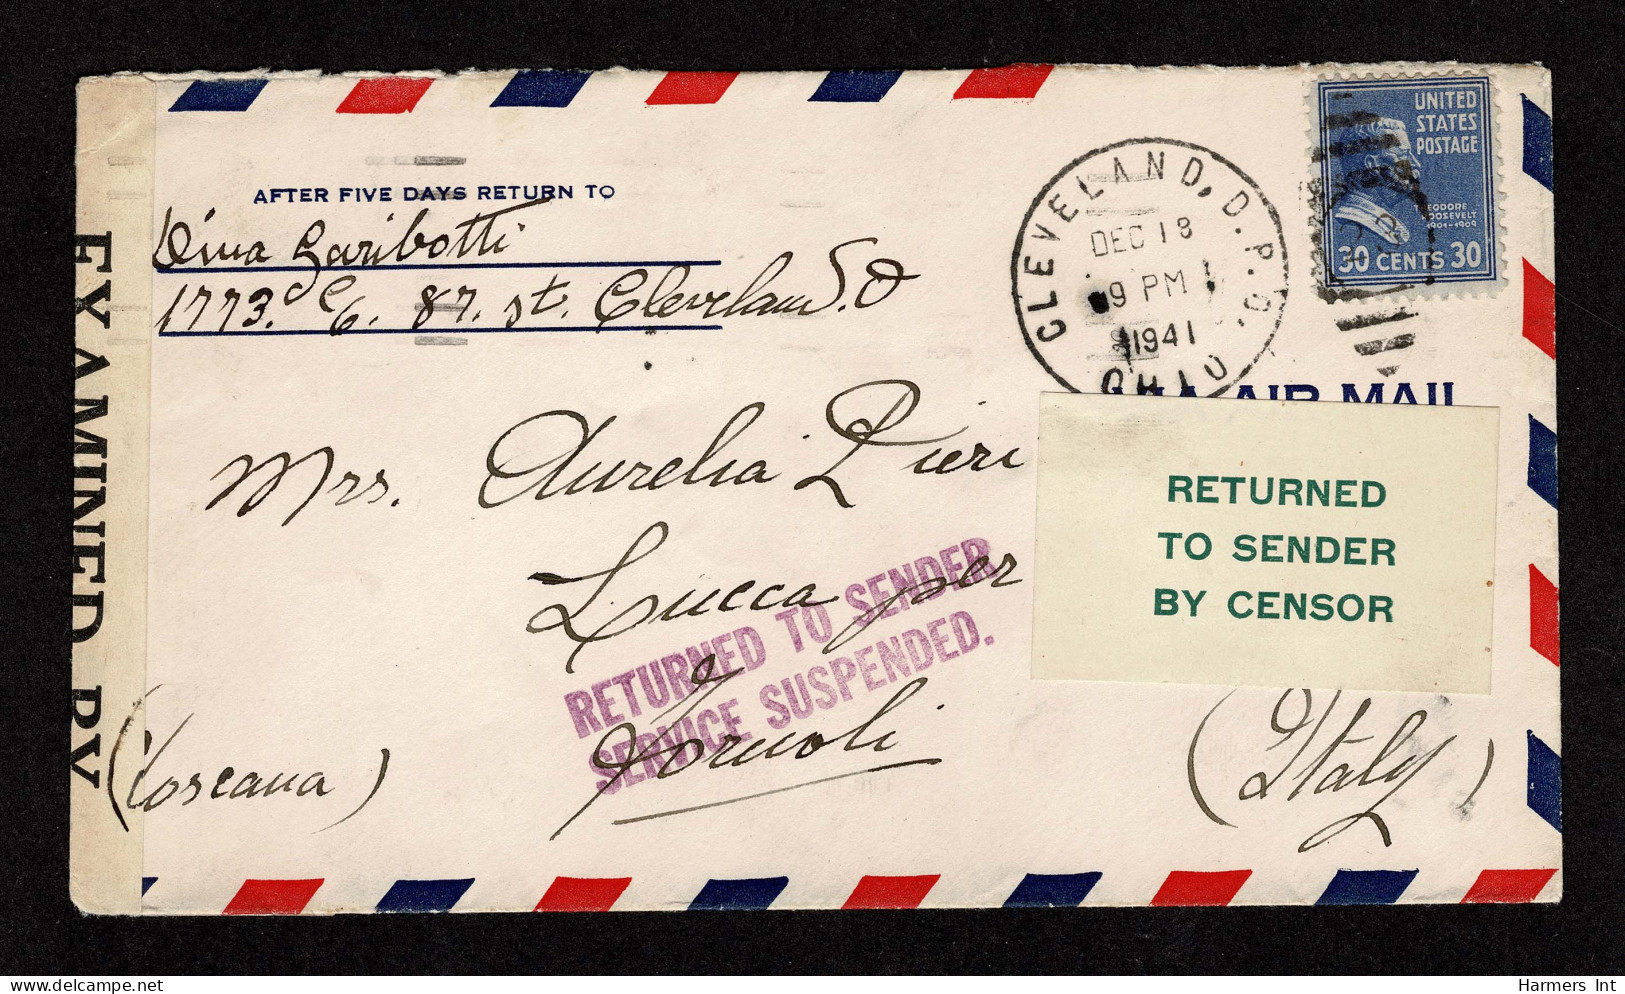 AFTER FIVE DAYS RETURN TO
Dina Garibotti
1773. E. 87. st. Cleveland. O
CLEVELAND, D.P.O. OHIO
DEC 18
9 PM
1941
UNITED
STATES
POSTAGE
30 CENTS 30
AIR MAIL
Mrs. Aurelia Pieri
Lucca per
(Toscana)
(Italy)
RETURNED
TO SENDER
BY CENSOR
RETURNED TO SENDER
SERVICE SUSPENDED.
EXAMINED BY
Harmers Int